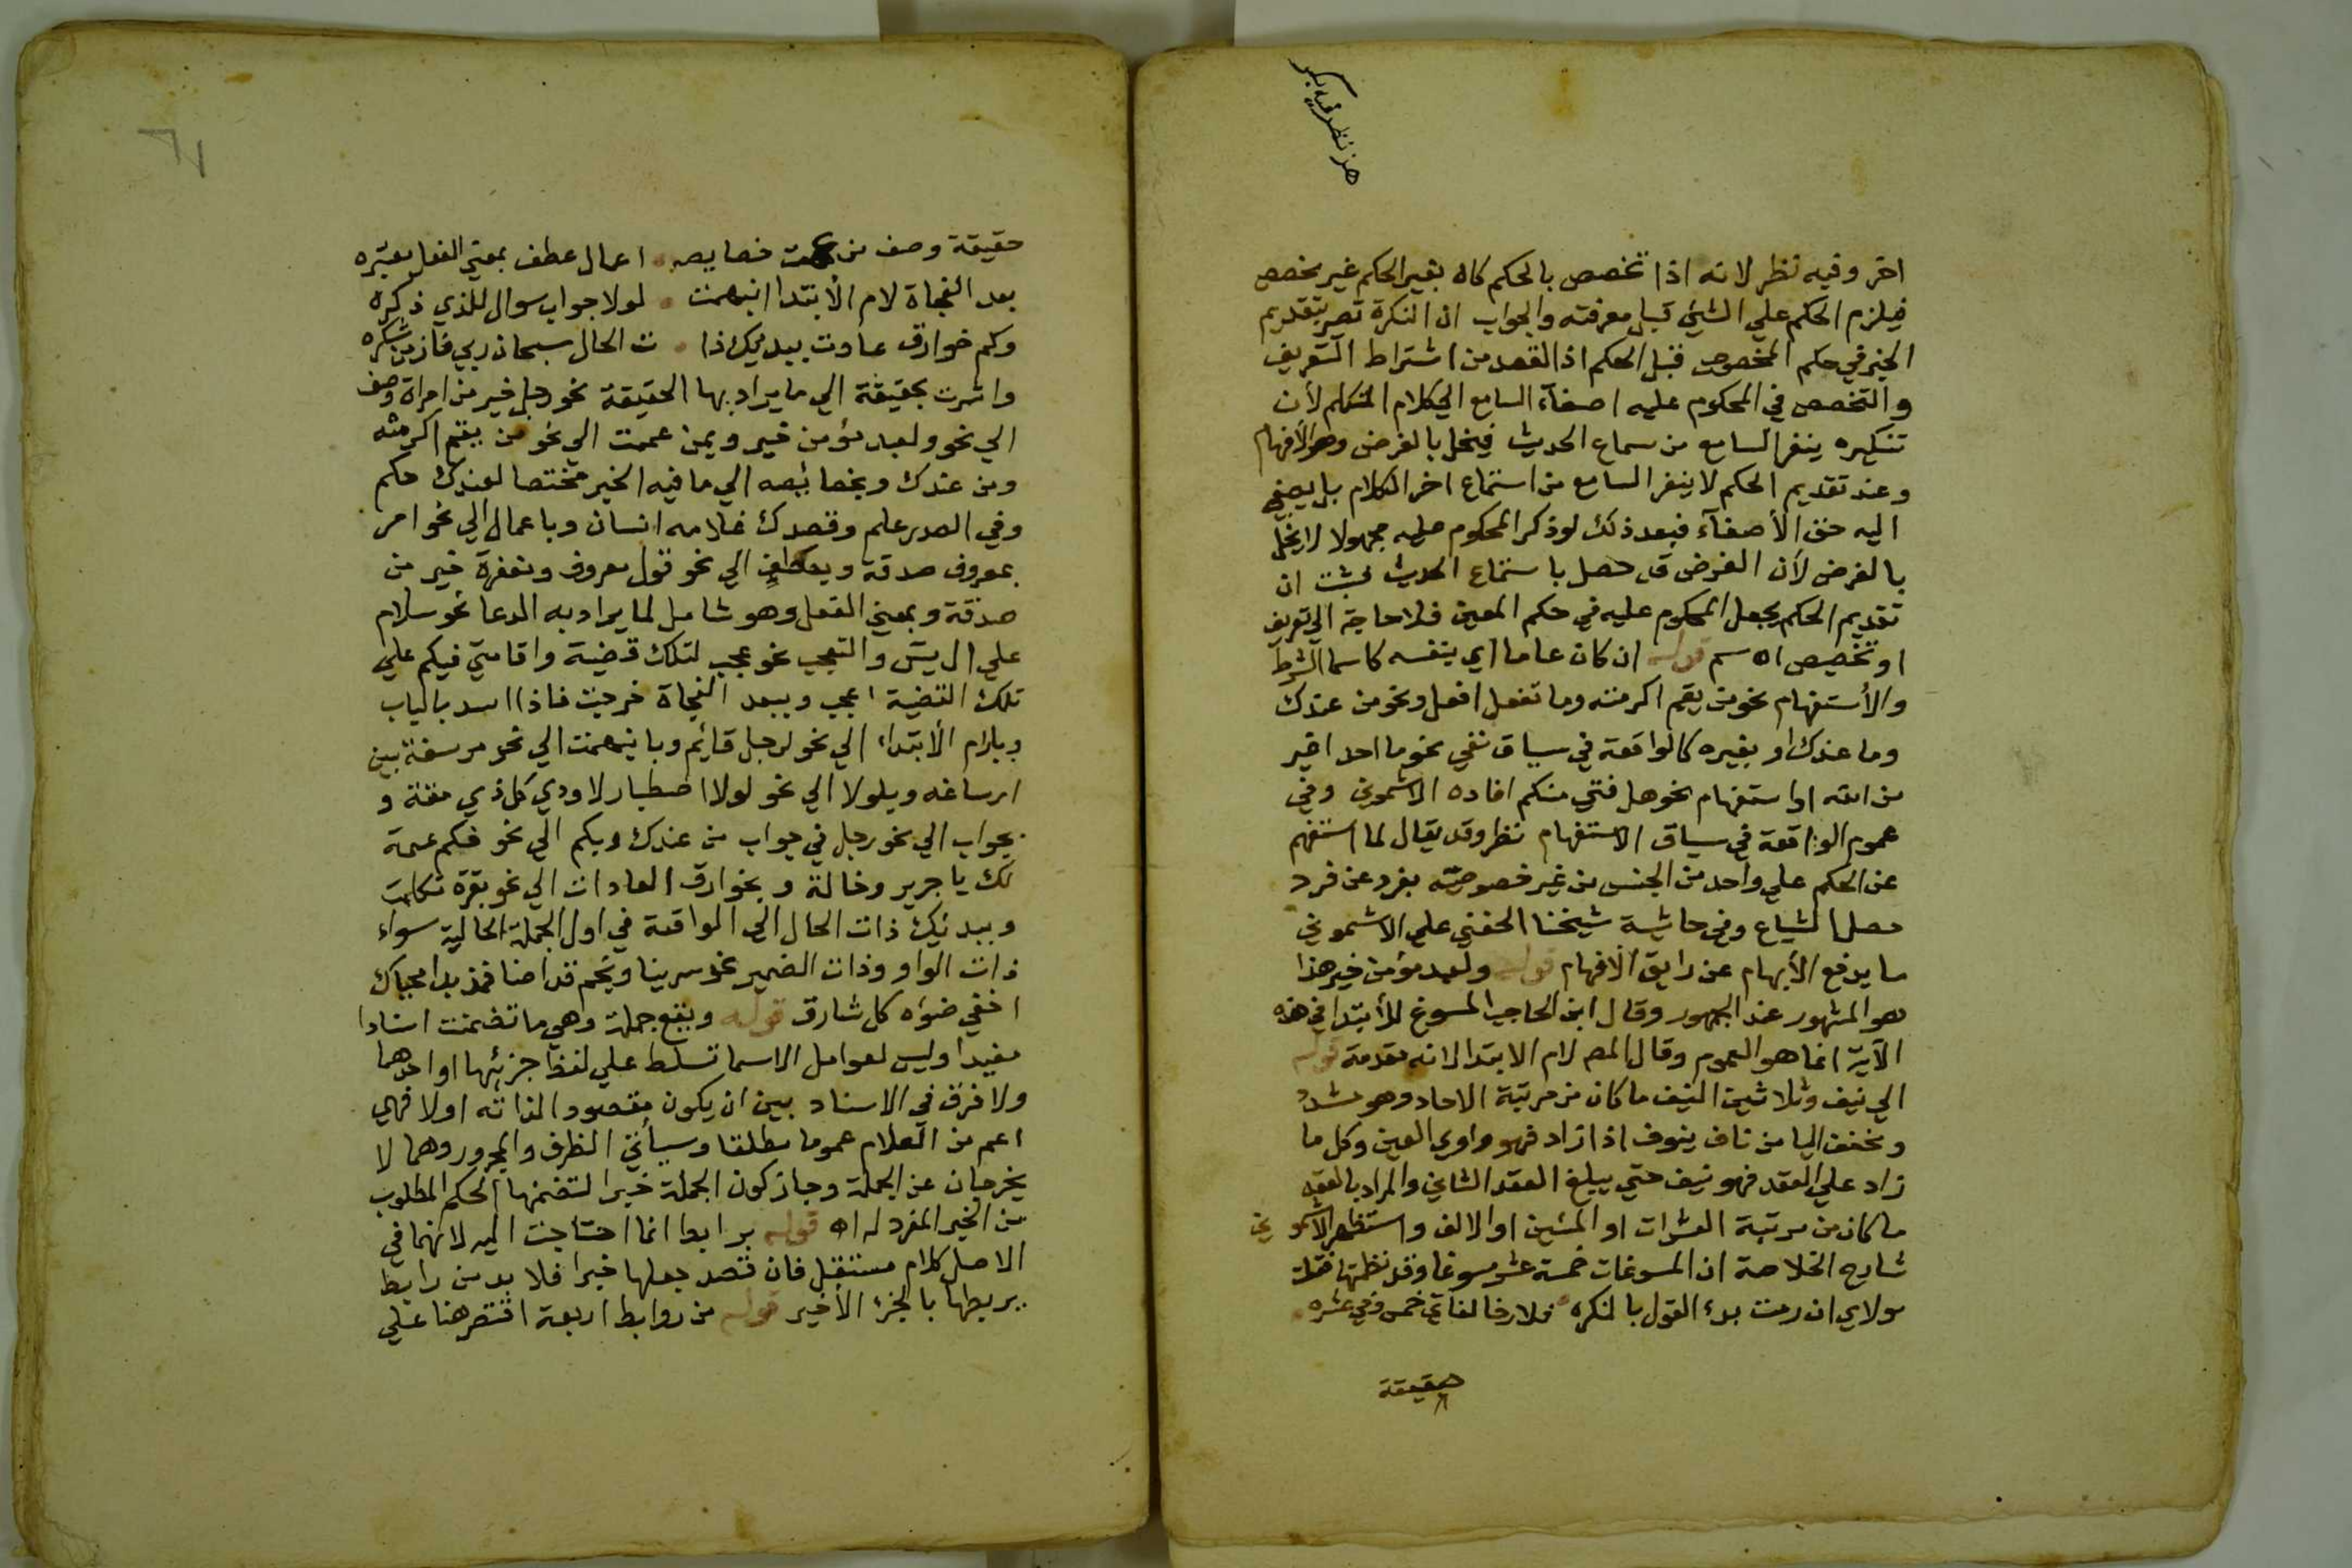 اخر وفيه نظر لانه اذا تخصص بالحكم كان بغير الحكم غير مخصص
فيلزم الحكم علي الشئ قبل معرفته والجواب ان النكرة تصير بتقديم
الخبر في حكم المخصوص قبل الحكم اذ القصد من اشتراط التعريف
والتخصص في المحكوم عليه اصغآء السامع الي كلام المتكلم لأن
تنكيره ينفر السامع من سماع الحديث فيخل بالغرض وهو الأفهام
وعند تقديم الحكم لا ينفر السامع من استماع اخر الكلام بل يصغي
اليه حق الأصغآء فبعد ذلك لو ذكر المحكوم عليه مجهولا لا يخل
بالغرض لأن الغرض قد حصل باستماع الحديث فثبت ان
تقديم الحكم يجعل المحكوم عليه في حكم المعين فلا حاجة الي تعريف
او تخصيص اه سم قوله ان كان عاما اي بنفسه كاسما الشرط
والأستفهام نحو من يقم اكرمته وما تفعل افعل ونحو من عندك
وما عندك او بغيره كالواقعة في سياق نفي نحو ما احد اغير
من الله او استفهام نحو هل فتي منكم افاده الاشموني وفي
عموم الواقعة في سياق الاستفهام نظر وقد يقال لما استفهم
عن الحكم علي واحد من الجنس من غير خصوصيته بفرد عن فرد
حصل الشياع وفي حاشية شيخنا الحفني علي الاشموني
ما يدفع الأبهام عن رايق الأفهام قوله ولعبد مؤمن خير هذا
هو المشهور عند الجمهور وقال ابن الحاجب المسوغ للأبتدا في هذه
الآية انما هو العموم وقال المص لام الابتدا لانه مقدمة قوله
الي نيف وثلاثين النيف ما كان من مرتبة الاحاد وهو مشدد
ومخفف اليا من ناف ينوف اذا زاد فهو واوي العين وكل ما
زاد علي العقد فهو نيف حتي يبلغ العقد الثاني والمراد بالعقد
ما كان من مرتبة العشرات او المئين او الالف واستظهر الاشموني
شارح الخلاصة ان المسوغات خمسة عشر مسوغا وقد نظمتها فقلت
مولاي ان رمت بدء القول بالنكره في عشره
حقيقة
حقيقة وصف من عمت خصايصه اعمال عطف بمعني الفعل
بعد الفجاة لام الأبتدا انبهمت لولا جواب سوال للذي ذكره
وكم خوارق عادت ببدئك ذا ت الحال سبحان ربي فاز من شكره
واشرت بحقيقة الي ما يراد بها الحقيقة نحو رجل خير من امراة وصف
الي نحو ولعبد مؤمن خير وبمن عممت الي نحو من يقم اكرمته
ومن عندك وبخصائصه الي ما فيه الخبر مختصا لعندك حكم
وفي الصدر علم وقصدك غلامه انسان وباعمال الي نحو امر
بمعروف صدقة وبعطف الي نحو قول معروف ومغفرة خير من
صدقة وبمعني الفعل وهو شامل لما يراد به الدعا نحو سلام
علي ال يس والتعجب نحو عجب لتلك قضية واقامتي فيكم علي
تلك القضية اعجب وببعد الفجاة خرجت فاذا اسد بالباب
وبلام الأبتداء الي نحو لرجل قائم وبانبهمت الي نحو مرسعة بين
ارساغه وبلولا الي نحو لولا اصطبار لاودي كل ذي مقة و
بجواب الي نحو رجل في جواب من عندك وبكم الي نحو فكم عمة
لك يا جرير وخالة وبخوارق العادات الي نحو بقرة تكلمت
وببدئك ذات الحال الي الواقعة في اول الجملة الحالية سواء
ذات الواو وذات الضمير نحو سرينا ونجم قد اضا فمذ بدا محياك
اخفي ضوءه كل شارق قوله ويقع جملة وهي ما تضمنت اسنادا
مفيدا وليس لعوامل الاسما تسلط علي لفظ جزئيها او احدهما
ولا فرق في الاسناد بين ان يكون مقصودا لذاته او لا فهي
اعم من الكلام عموما مطلقا وسيأتي الظرف والمجرور وهما لا
يخرجان عن الجملة وجاز كون الجملة خبرا لتضمنها الحكم المطلوب
من الخبر المفرد له اه قوله برابط انما احتاجت اليه لانها في
الاصل كلام مستقبل فان قصد جعلها خبرا فلا بد من رابط
يربطها بالجزء الأخير قوله من روابط اربعة اقتصر هنا علي